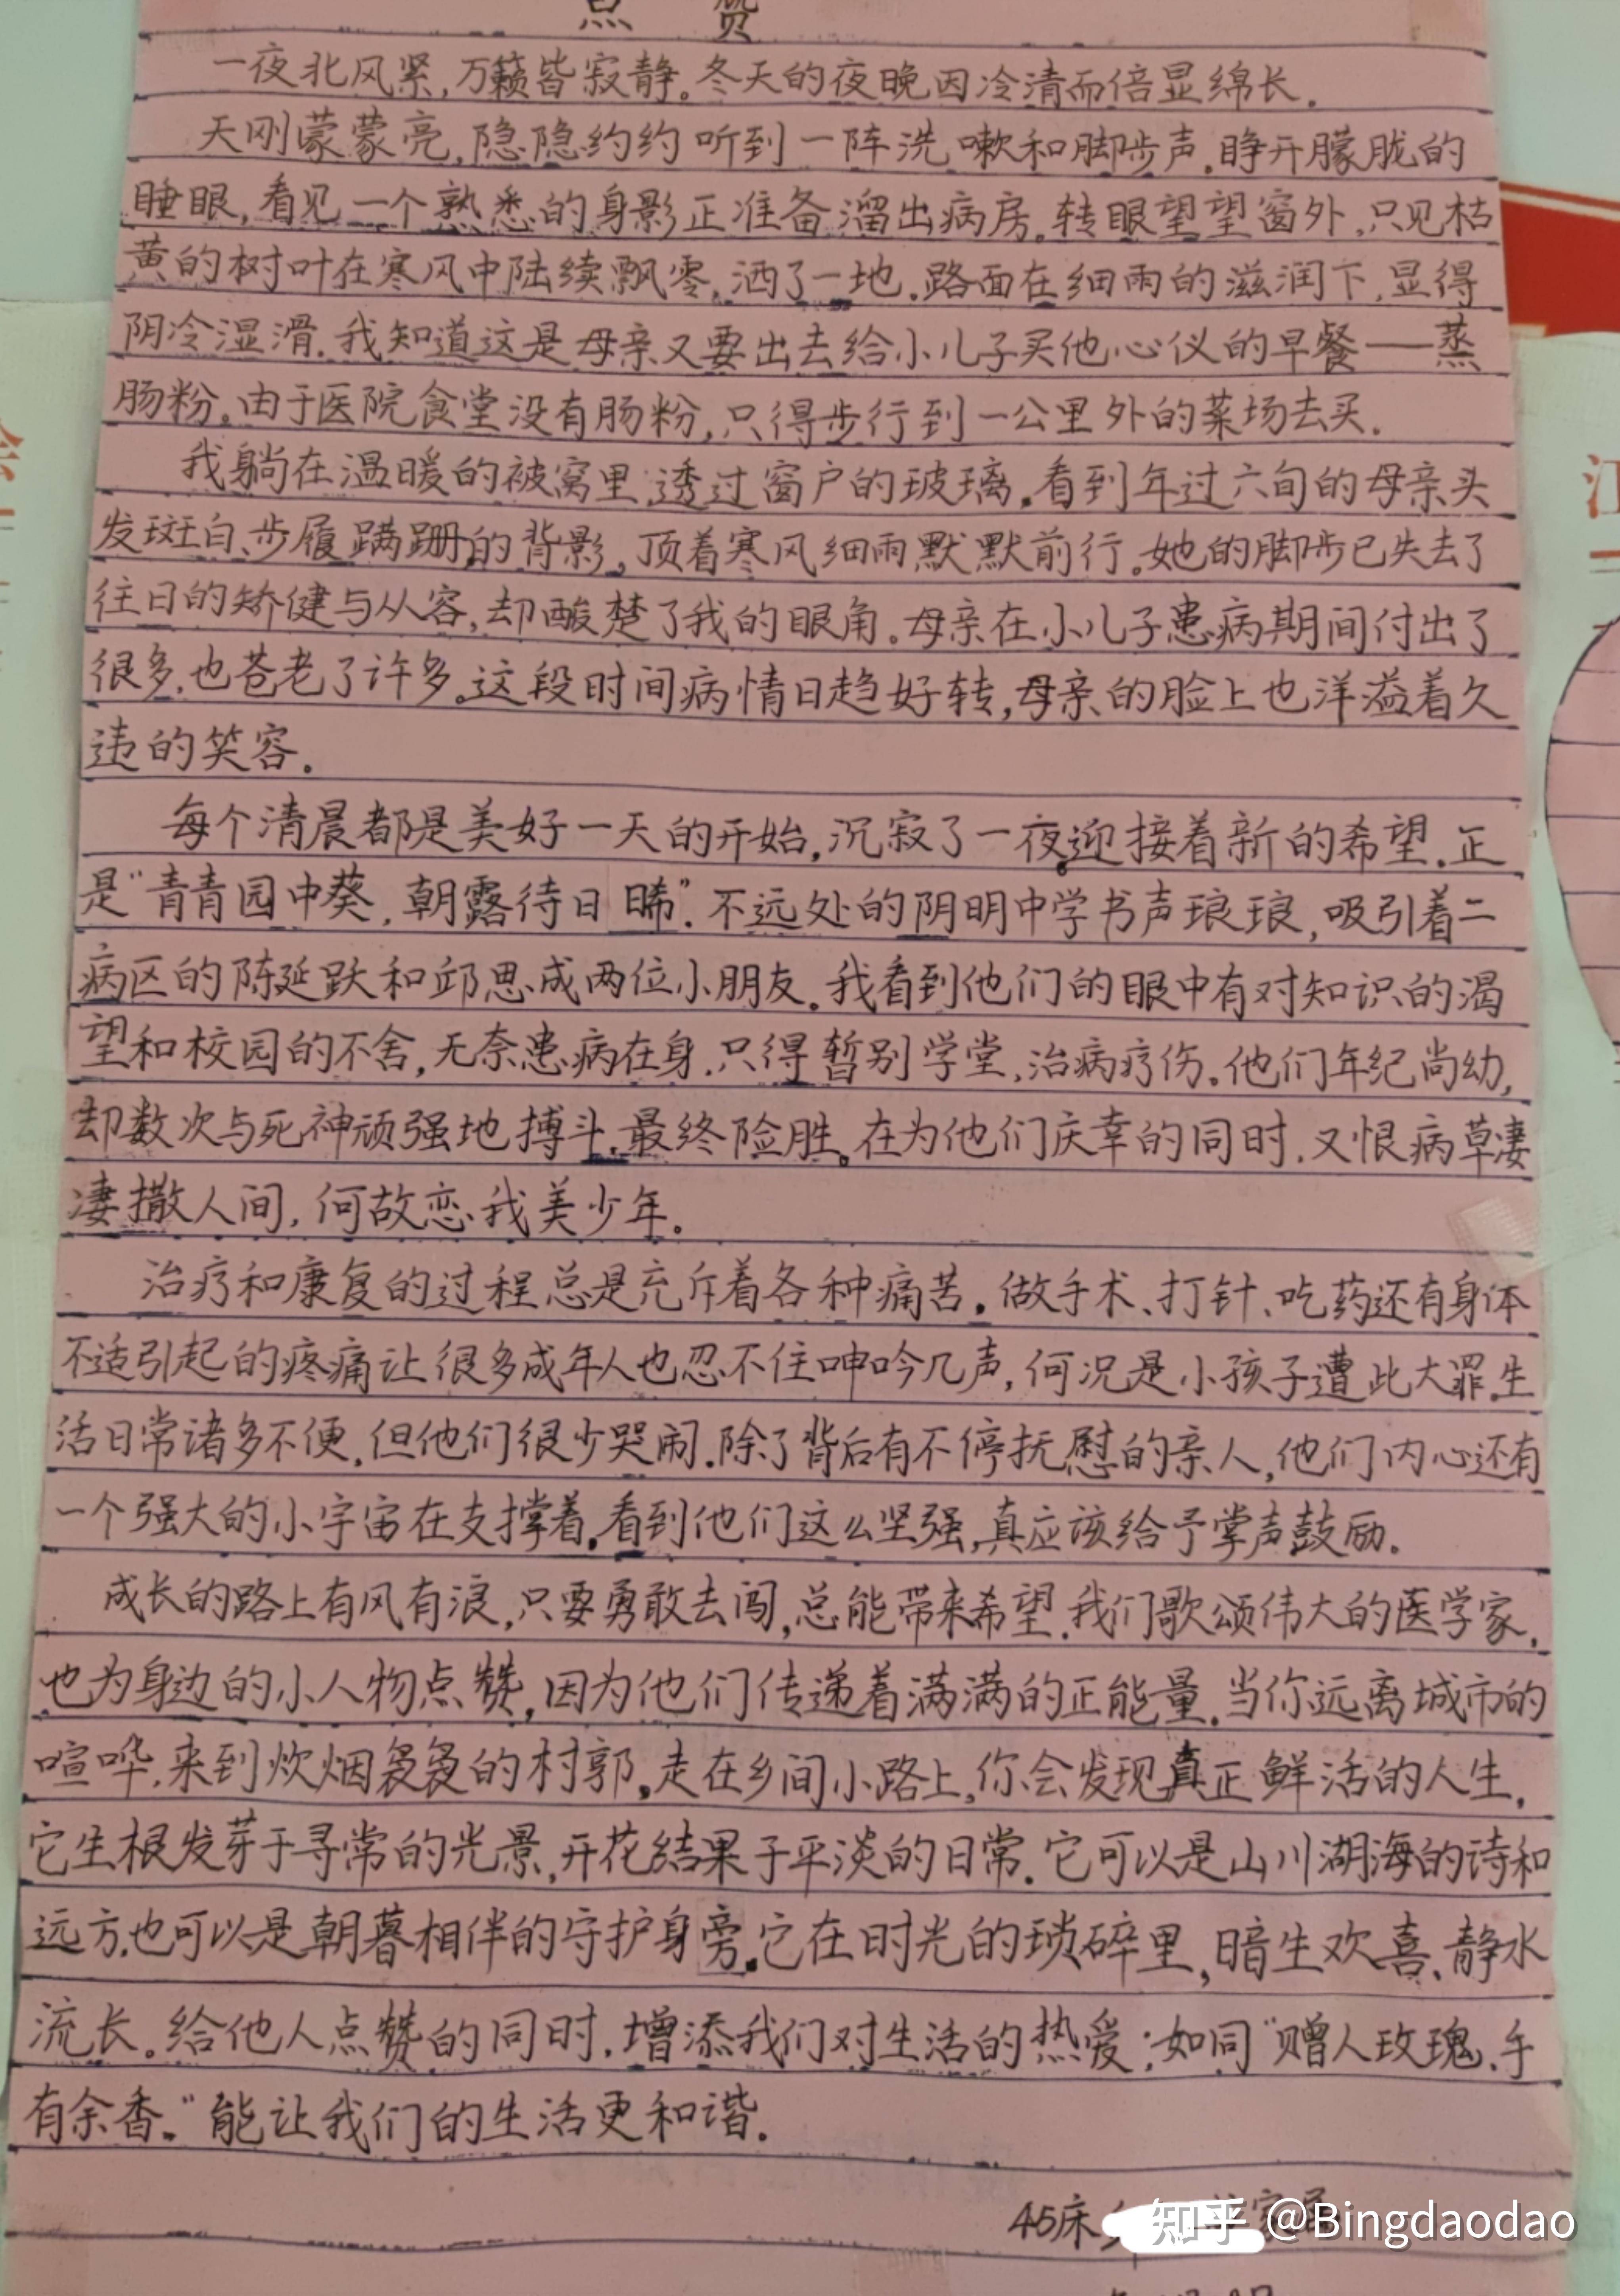 点 赞
一夜北风紧,万籁皆寂静。冬天的夜晚因冷清而倍显绵长.
天刚蒙蒙亮,隐隐约约听到一阵洗嗽和脚步声.睁开朦胧的
睡眼,看见一个熟悉的身影正准备溜出病房.转眼望望窗外,只见枯
黄的树叶在寒风中陆续飘零,洒了一地.路面在细雨的滋润下,显得
阴冷湿滑.我知道这是母亲又要出去给小儿子买他心仪的早餐——蒸
肠粉。由于医院食堂没有肠粉,只得步行到一公里外的菜场去买.
我躺在温暖的被窝里,透过窗户的玻璃.看到年过六旬的母亲头
发斑白、步履蹒跚的背影,顶着寒风细雨默默前行。她的脚步已失去了
往日的矫健与从容,却酸楚了我的眼角.母亲在小儿子患病期间付出了
很多.也苍老了许多。这段时间病情日趋好转,母亲的脸上也洋溢着久
违的笑容.
每个清晨都是美好一天的开始,沉寂了一夜,迎接着新的希望.正
是"青青园中葵,朝露待日晞".不远处的阴明中学书声琅琅,吸引着二
病区的陈延跃和邱思成两位小朋友.我看到他们的眼中有对知识的渴
望和校园的不舍,无奈患病在身.只得暂别学堂,治病疗伤。他们年纪尚幼,
却数次与死神顽强地搏斗.最终险胜。在为他们庆幸的同时.又恨病草凄
凄撒人间,何故恋我美少年。
治疗和康复的过程总是充斥着各种痛苦.做手术、打针、吃药还有身体
不适引起的疼痛让很多成年人也忍不住呻吟几声,何况是小孩子遭此大罪.生
活日常诸多不便,但他们很少哭闹.除了背后有不停抚慰的亲人,他们内心还有
一个强大的小宇宙在支撑着.看到他们这么坚强,真应该给予掌声鼓励.
成长的路上有风有浪,只要勇敢去闯,总能带来希望.我们歌颂伟大的医学家,
也为身边的小人物点赞,因为他们传递着满满的正能量.当你远离城市的
喧哗,来到炊烟袅袅的村郭.走在乡间小路上,你会发现真正鲜活的人生,
它生根发芽于寻常的光景,开花结果于平淡的日常.它可以是山川湖海的诗和
远方.也可以是朝暮相伴的守护身旁.它在时光的琐碎里,暗生欢喜、静水
流长。给他人点赞的同时.增添我们对生活的热爱;如同"赠人玫瑰.手
有余香."能让我们的生活更和谐.
45床
知乎 @Bingdaodao